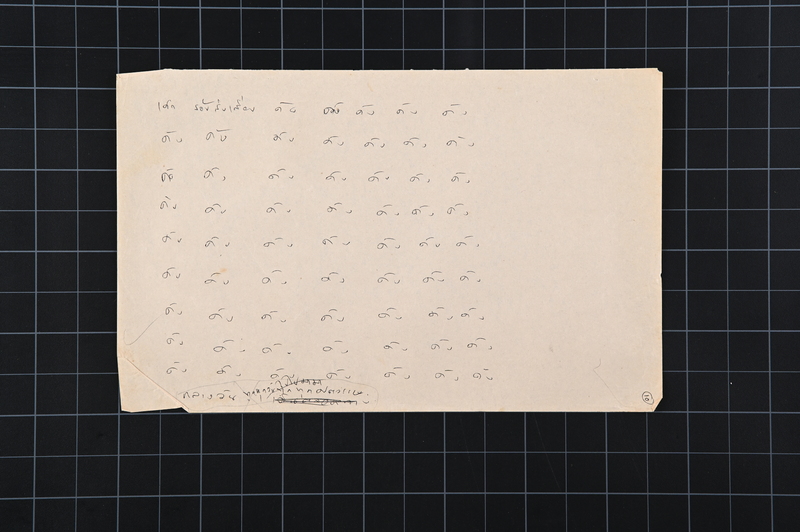 เด็ก ร้องส่งเสียง ดัง ดัง ดัง ดัง ดัง
ดัง ดัง ดัง ดัง ดัง ดัง ดัง
ดัง ดัง ดัง ดัง ดัง ดัง ดัง
ดัง ดัง ดัง ดัง ดัง ดัง ดัง
ดัง ดัง ดัง ดัง ดัง ดัง ดัง
ดัง ดัง ดัง ดัง ดัง ดัง ดัง
ดัง ดัง ดัง ดัง ดัง ดัง ดัง
ดัง ดัง ดัง ดัง ดัง ดัง ดัง
ดัง ดัง ดัง ดัง ดัง ดัง ดัง
กลางวัน